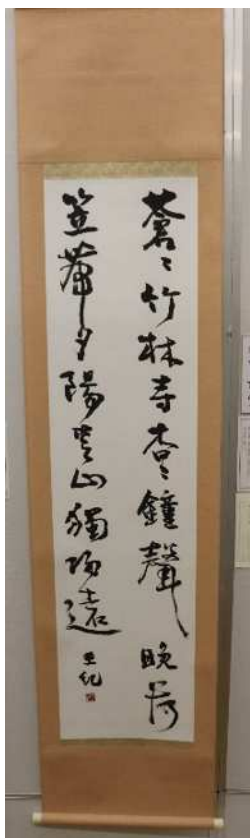 蒼々竹林寺杳々鐘聲晩荷
笠帶夕陽青山獨歸遠 亜紀